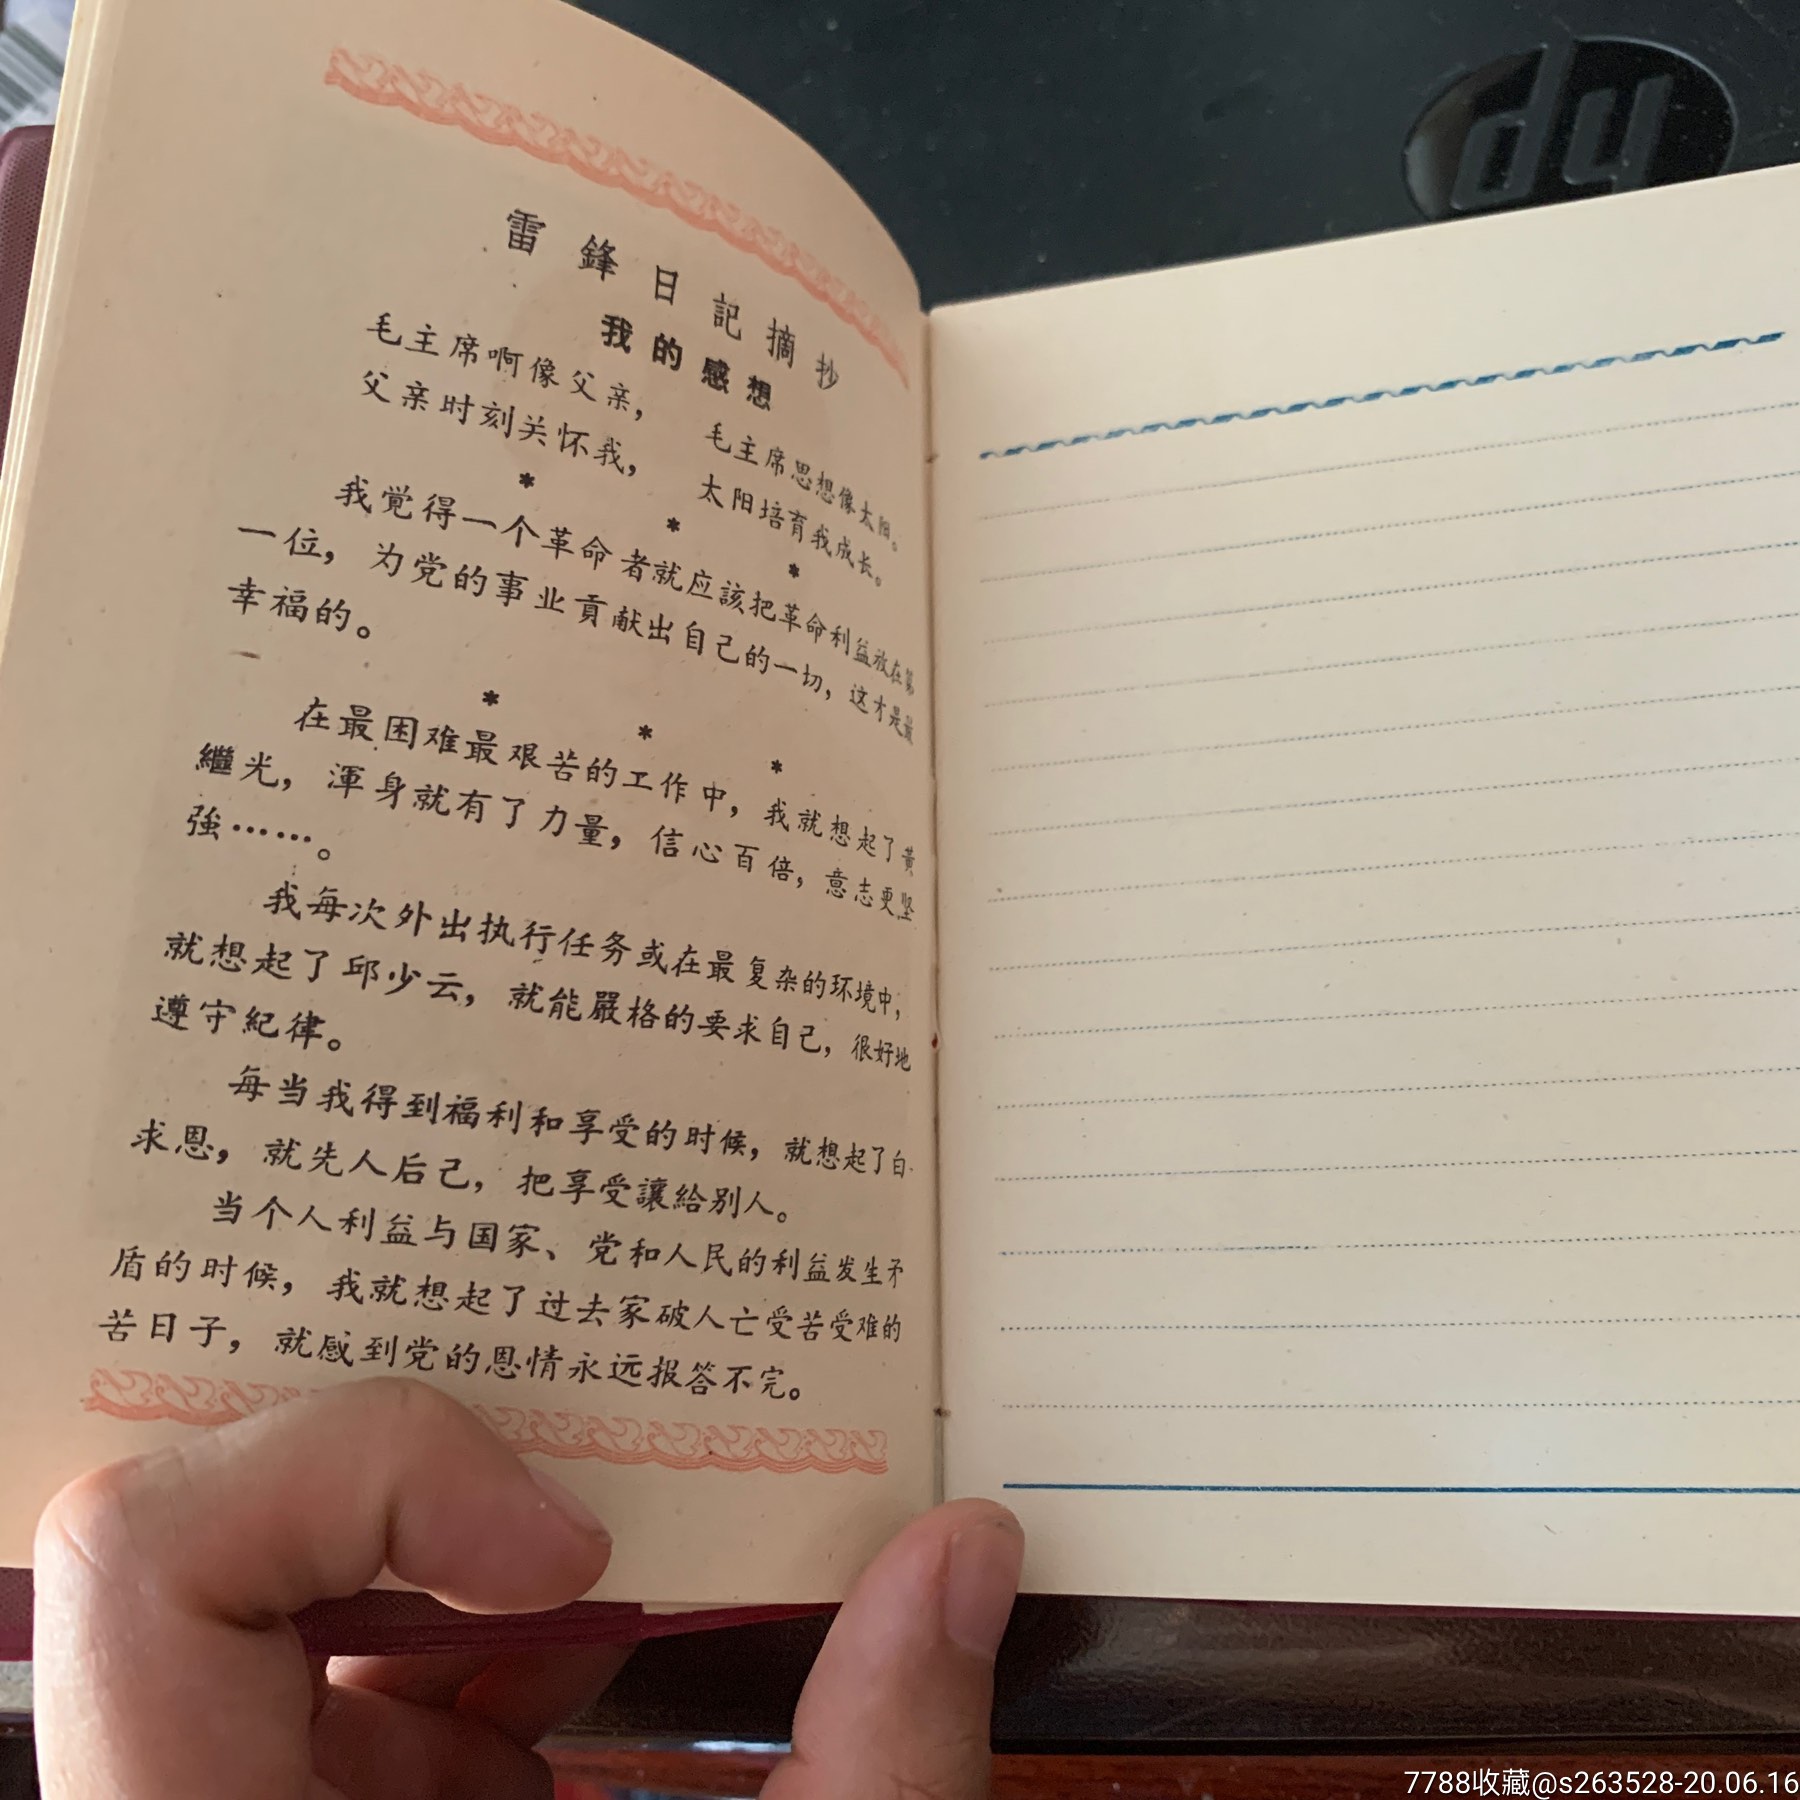 雷鋒日記摘抄
我的感想
毛主席啊像父亲， 毛主席思想像太阳。
父亲时刻关怀我， 太阳培育我成长。
* * *
我觉得一个革命者就应該把革命利益放在第
一位，为党的事业貢献出自己的一切，这才是最
幸福的。
* * *
在最困难最艰苦的工作中，我就想起了黄
繼光，渾身就有了力量，信心百倍，意志更坚
強……。
我每次外出执行任务或在最复杂的环境中，
就想起了邱少云，就能嚴格的要求自己，很好地
遵守紀律。
每当我得到福利和享受的时候，就想起了白
求恩，就先人后己，把享受讓給别人。
当个人利益与国家、党和人民的利益发生矛
盾的时候，我就想起了过去家破人亡受苦受难的
苦日子，就感到党的恩情永远报答不完。
hp
7788收藏@s263528-20.06.16